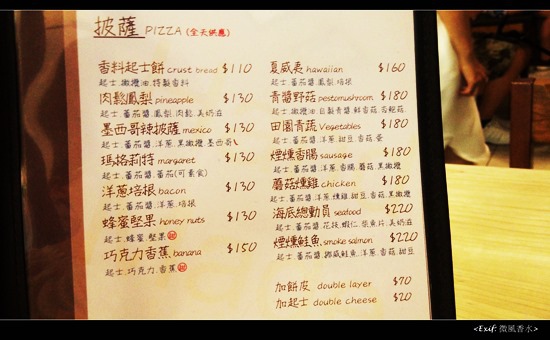 披薩 PIZZA (全天供應)
香料起士餅 crust bread $110
起士.橄欖油.特製香料
肉鬆鳳梨 pineapple $130
起士.番茄醬.鳳梨.肉鬆.美奶滋
墨西哥辣披薩 mexico $130
起士.番茄醬.洋蔥.黑橄欖.墨西哥
瑪格莉特 margaret $130
起士.番茄醬.番茄(可素食)
洋蔥培根 bacon $130
起士.番茄醬.洋蔥.培根
蜂蜜堅果 honey nuts $130
起士.蜂蜜.堅果
巧克力香蕉 banana $150
起士.巧克力.香蕉
夏威夷 hawaiian $160
起士.番茄醬.鳳梨.培根
青醬野菇 pestomushroom $180
起士.橄欖油.自製青醬.鮮香菇.杏鮑菇
田園青蔬 Vegetables $180
起士.番茄醬.洋蔥.甜豆.香菇.蛋
煙燻香腸 sausage $180
起士.番茄醬.洋蔥.香腸.蘑菇.黑橄欖
蘑菇燻雞 chicken $180
起士.番茄醬.洋蔥.燻雞.甜豆.香菇.黑橄欖
海底總動員 seafood $220
起士.番茄醬.花枝.蝦仁.柴魚片.美奶滋
煙燻鮭魚 smoke salmon $220
起士.番茄醬.挪威鮭魚.洋蔥.香菇.甜豆
加餅皮 double layer $70
加起士 double cheese $20
<Exif: 微風香水>